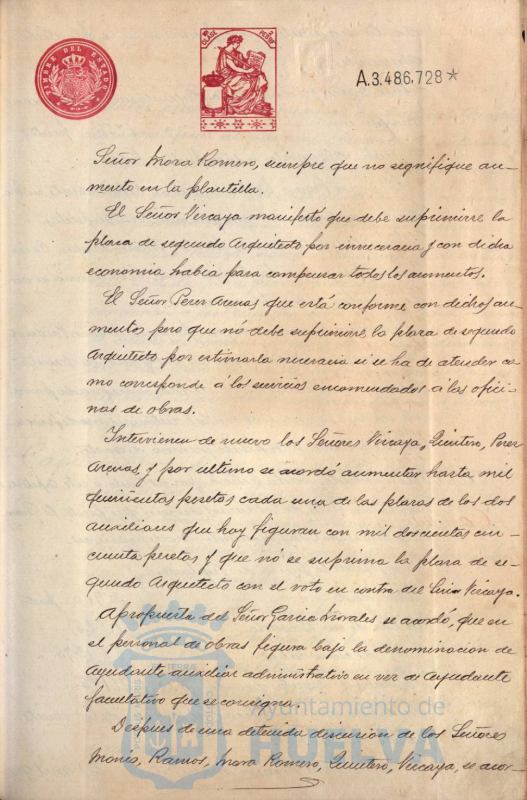 TIMBRE DEL ESTADO
CLASE
A.3.486.728*
Señor Mora Romero, siempre que no signifique au-
mento en la plantilla.
El Señor Vizcaya manifestó que debe suprimirse la
plaza de segundo Arquitecto por innecesaria y con dicha
economia habia para compensar todos los aumentos.
El Señor Perez Arenas que está conforme con dichos au-
mentos pero que nó debe suprimirse la plaza de segundo
Arquitecto por estimarla necesaria si se ha de atender co-
mo corresponde á los servicios encomendados a las ofici-
nas de obras.
Intervienen de nuevo los Señores Vizcaya, Quintero, Perez
Arenas, y por ultimo se acordó aumentar hasta mil
quinientas pesetas cada una de las plazas de los dos
auxiliares que hoy figuran con mil doscientas cin-
cuenta pesetas y que nó se suprima la plaza de se-
gundo Arquitecto con el voto en contra del Señor Vizcaya.
A propuesta del Señor Garcia Morales se acordó, que en
el personal de obras figura bajo la denominacion de
Ayudante auxiliar administrativo en vez de Ayudante
facultativo que se consigna.
Despues de una detenida discusion de los Señores
Monis, Ramos, Mora Romero, Quintero, Vizcaya, se acor-
Ayuntamiento de
HUELVA